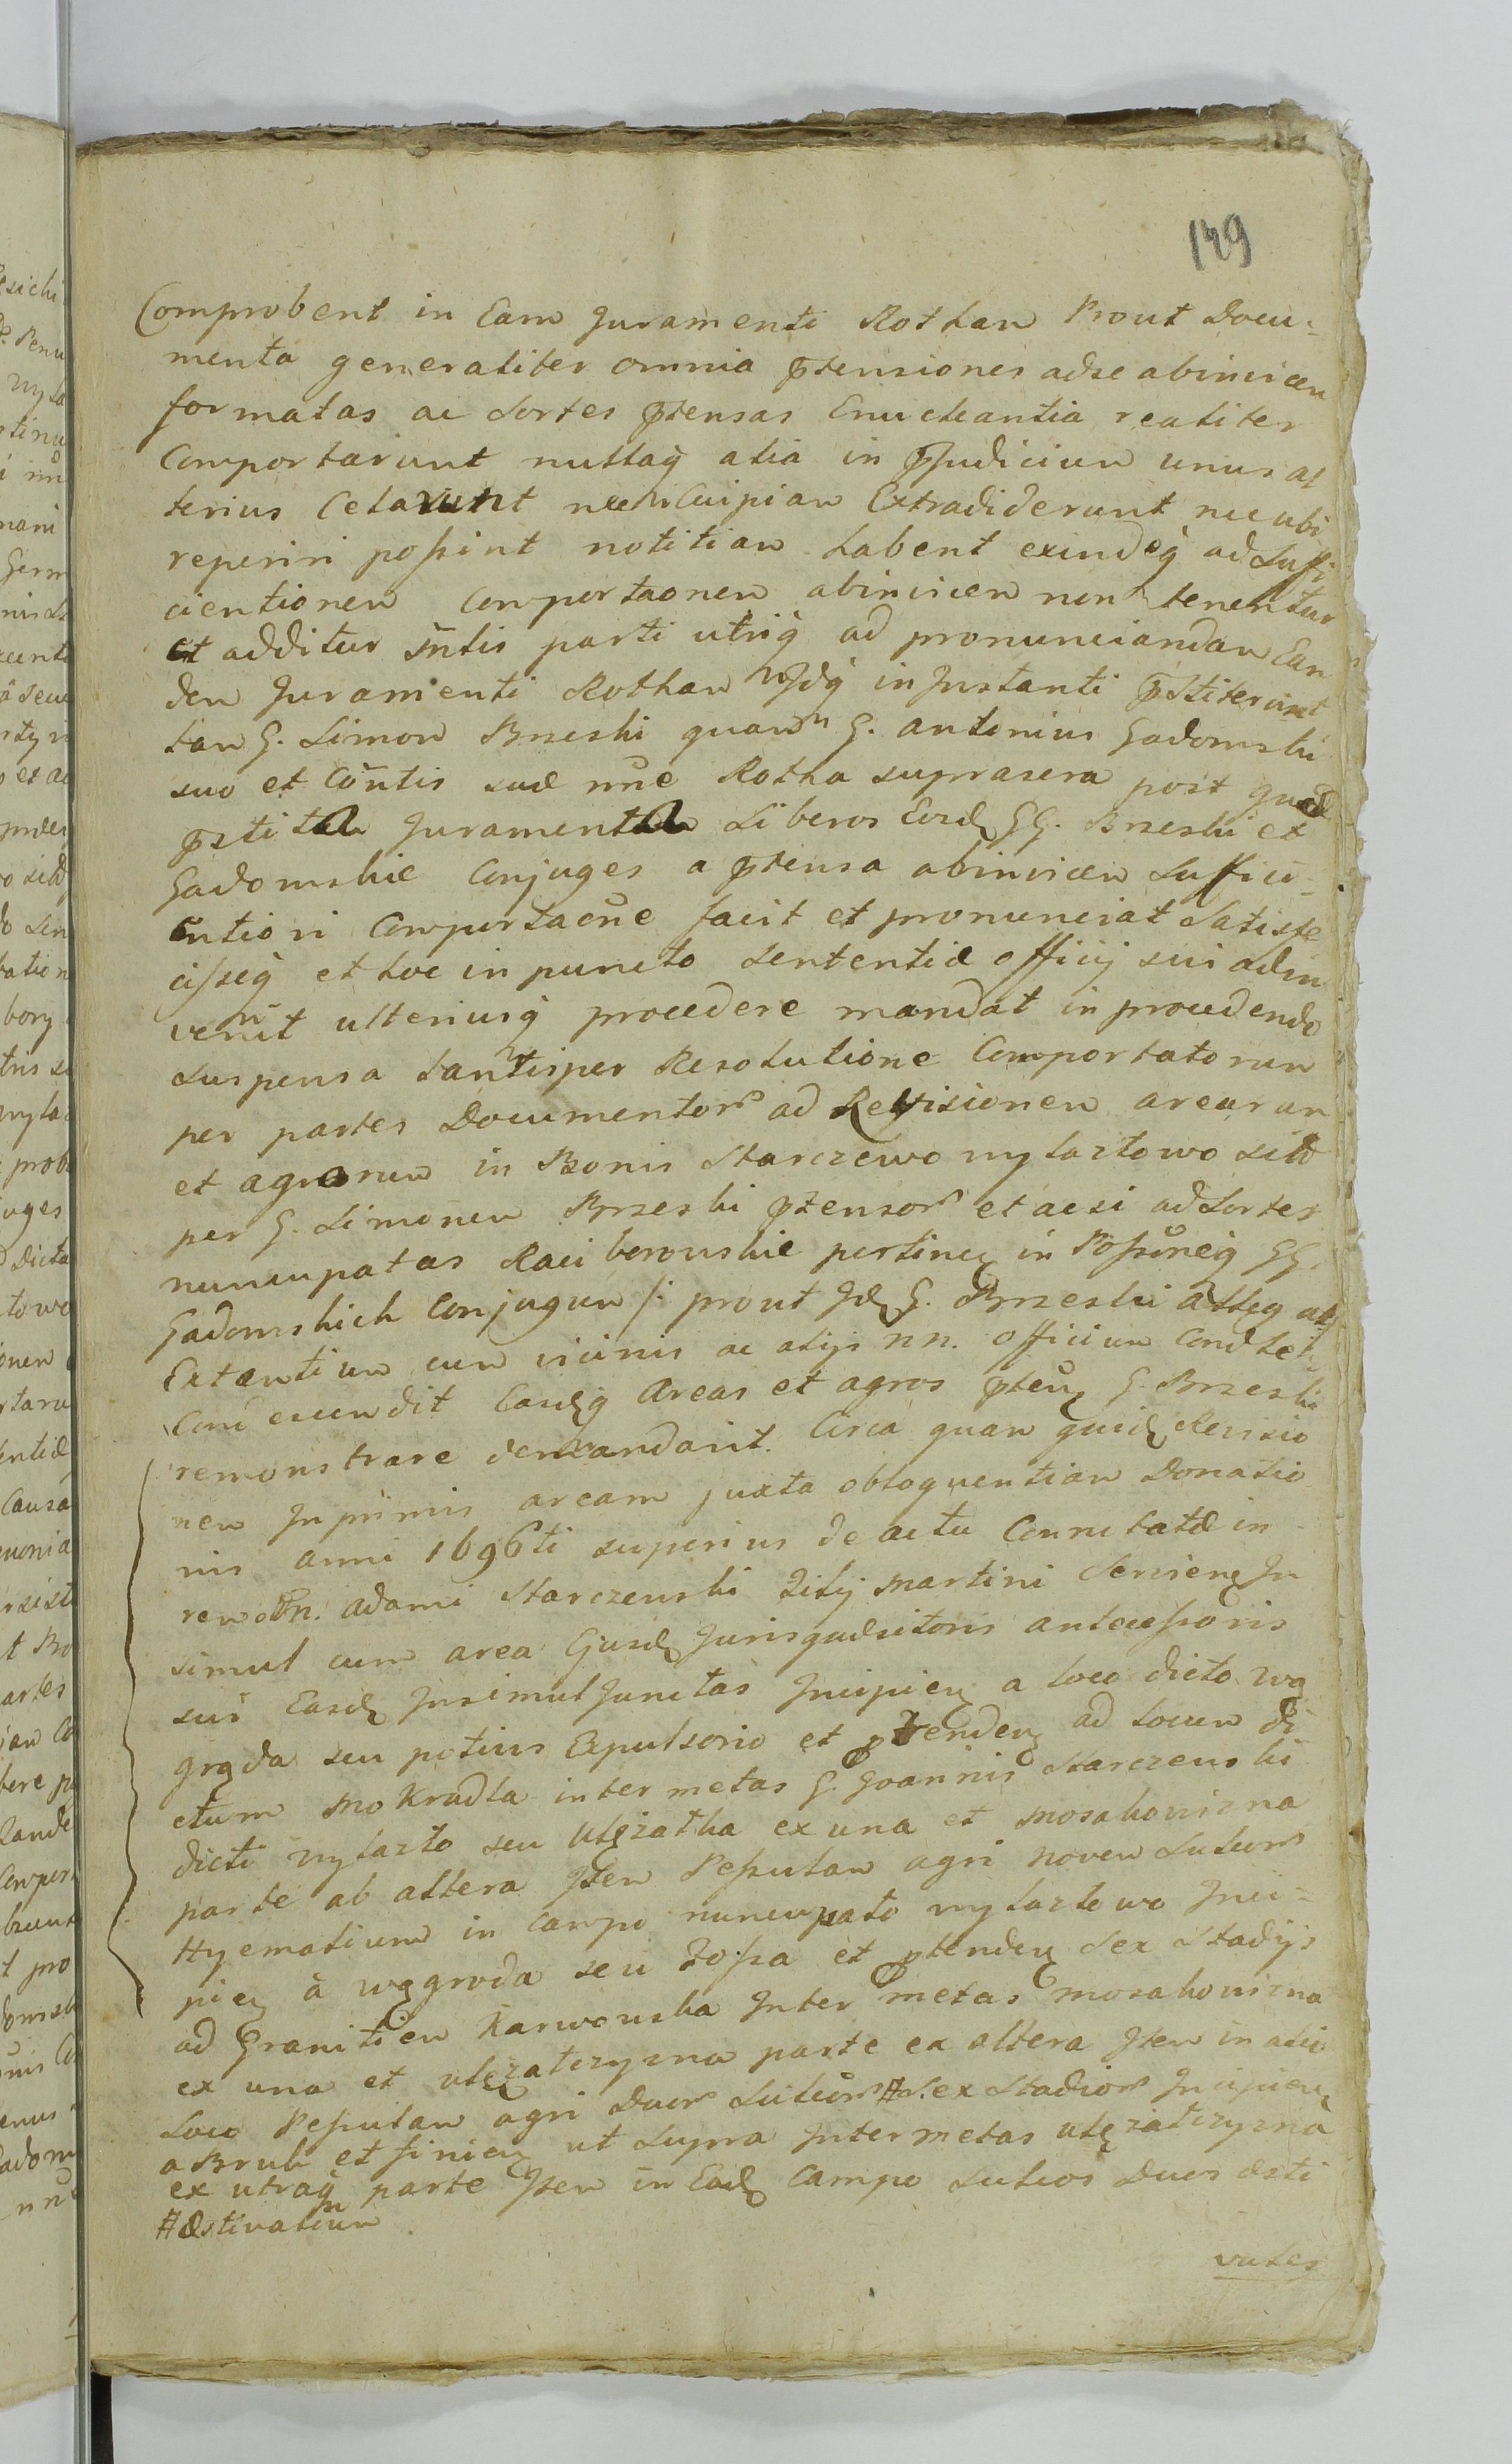 149
Comprobent in Eam Juramenti Rotham Prout Docu-
menta generaliter omnia ptensiones adse abinvicem
formatas ac Sortes ptensas Enucleantia realiter
Comportarunt nullaq alia in pJudicium unus al
terius Celarunt nec Cuipiam Extradiderunt nec ubi
reperiri possint notitiam habent exindeq ad Suffi
cientionem Comportaonem abinvicem non tenentur
et additur sntis parti utriq ad pronunciandam Ean
dem Juramenti Rotham Jdq in Jnstanti pstiterunt
tam G. Simon Brzeski quam G. antonius Gadomski
suo et Contis suæ nñe Rotha suprasera post quæ
pstita Juramenta Liberos Eosd GG. Brzeski et
Gadomskie Conjuges a ptensa abinvicem Suffici-
entiori Comportacõne facit et pronunciat Satisfe
cisseq et hoc in puncto Sententiæ officij sui adin
venit ulteriusq procedere mandat in procedendo
Suspensa tantisper Resolutione Comportatorum
per partes Documentor ad Revisionem arearum
et agrorum in Bonis Starczewo mylaztowo
per G. Simonem Brzeski ptensor et acsi ad Sortes
nuncupatas Raciborowskie pertinen in Possoneiq GG.
Gadomskich Conjugum /: prout Jd G. Brzeski alleg at
Extantium cum vicinis ac alijs nn. officium
Condescendit Easdq Areas et agros pten G. Brzeski
remonstrare demandavit. Circa quam quid Revisio
nem Jnprimis aream juxta obloquentiam Donatio
nis anni 1696ti superius de actu Connotatæ in
rem olim Adami Starczewski Filij Martini Servien Jn
simul cum area Ejusd Jurisquæsitoris antecessoris
sui Easd Jnsimul Junctas Jncipien a loco dicto wą
grąda seu potius Expulsorio et ptenden ad locum di
ctum Mokradla inter metas G. Joannis Starczewski
dicti mylazto seu ulęzatka ex una et mosakowizna
parte ab altera Jtem Peputam agri novem Sulcor
Hyematium in Campo nuncupato mylaztowo Jnci-
pien à wągroda seu Fossa et ptenden Sex Stadijs
ad Granitiem Karwowska Jnter metas mosakowizna
ex una et ulęzatczyzna parte ex altera Jtem in alio
Loco Peputam agri Duor Sulcor # Sex Stadior Jncipien
a Bruk et finien ut Supra Jnter metas ulęzatczyzna
ex utraq parte Jtem in Eod Campo Sulcos Duos æsti
# æstivalium
vales